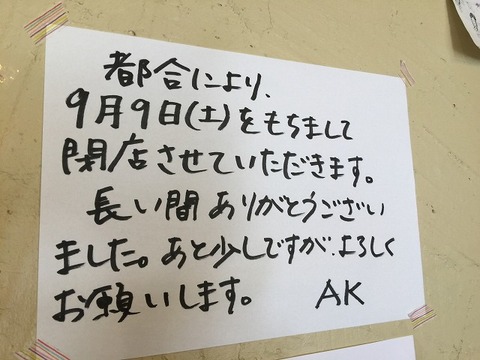 都合により、
9月9日(土)をもちまして
閉店させていただきます。
長い間ありがとうござい
ました。あと少しですが、よろしく
お願いします。 AK